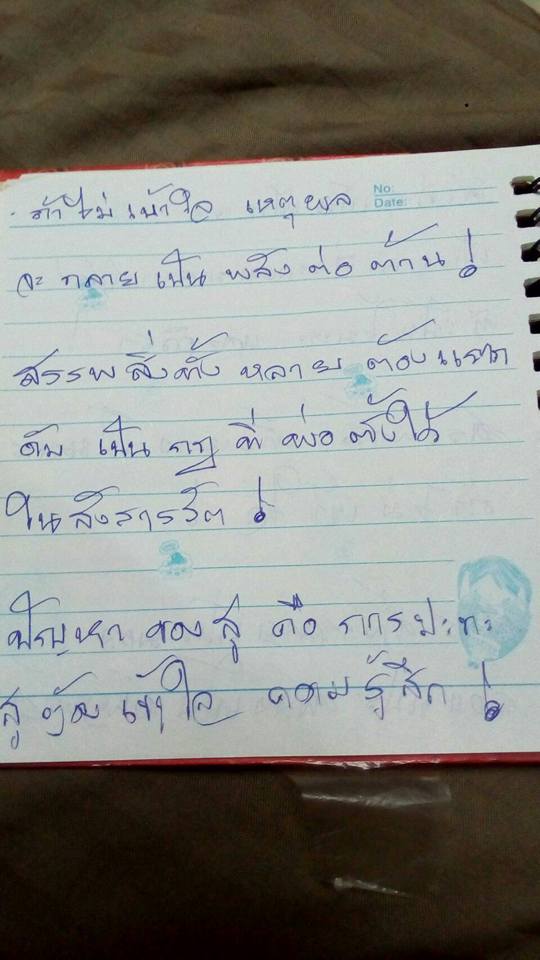 No:
Date:
ถ้าไม่เข้าใจ เหตุผล
จะ กลาย เป็น พลัง ต่อ ต้าน !
สรรพสิ่งทั้ง หลาย ต้องแตก
ดับ เป็น กฎ ที่ พ่อ ตั้งไว้
ในสังสารวัต !
ปัญหา ของ สู คือ การ ปะทะ
สู ต้อง เข้าใจ ความ รู้สึก !